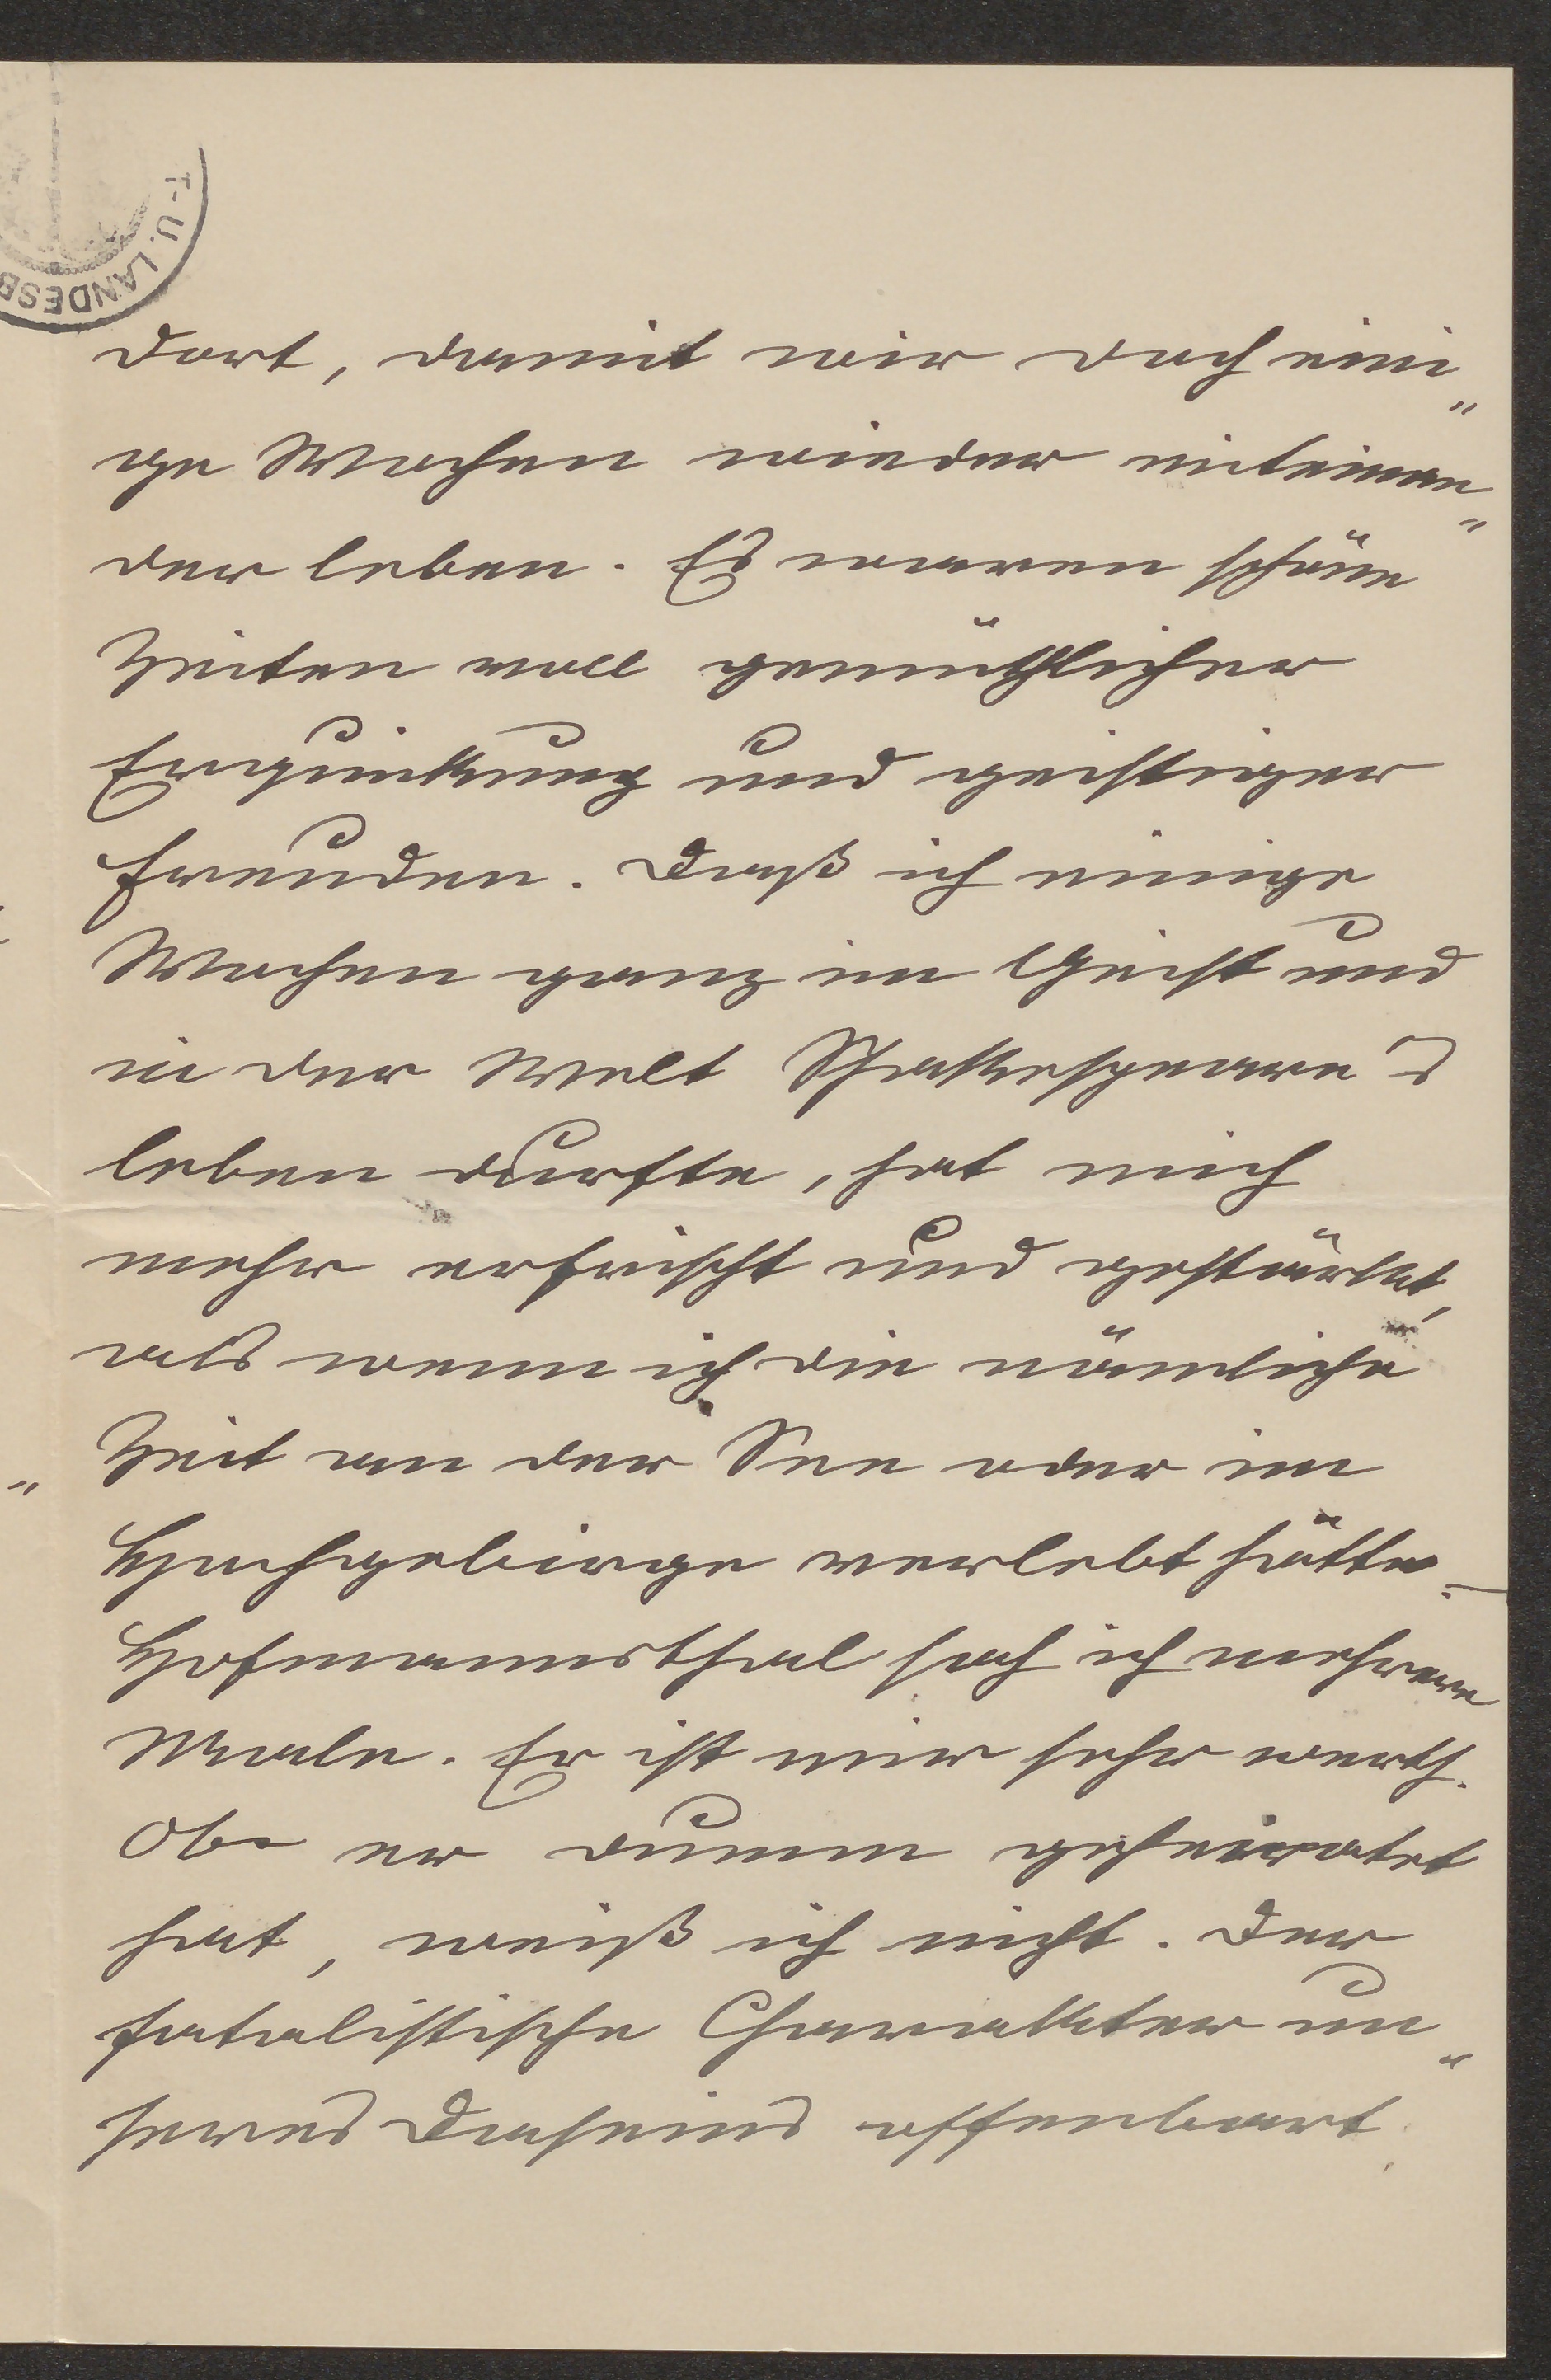 T- U. LANDESB
dort, damit wir doch eini„
ge Wochen wieder miteinan„
der leben. Es waren schöne
Zeiten voll gemüthlicher
Erquickung und geistiger
Freuden. Daß ich einige
Wochen ganz im Geist und
in der Welt Shakespeare's
leben durfte, hat mich
mehr erfrischt und gestärkt,
als wenn ich die nämliche
Zeit an der See oder im
Hochgebirge verlebt hätte. –
Hofmannsthal sah ich mehrere
Male. Er ist mir sehr werth.
Ob er dumm geheiratet
hat, weiß ich nicht. Der
fatalistische Charakter un„
seres Daseins offenbart